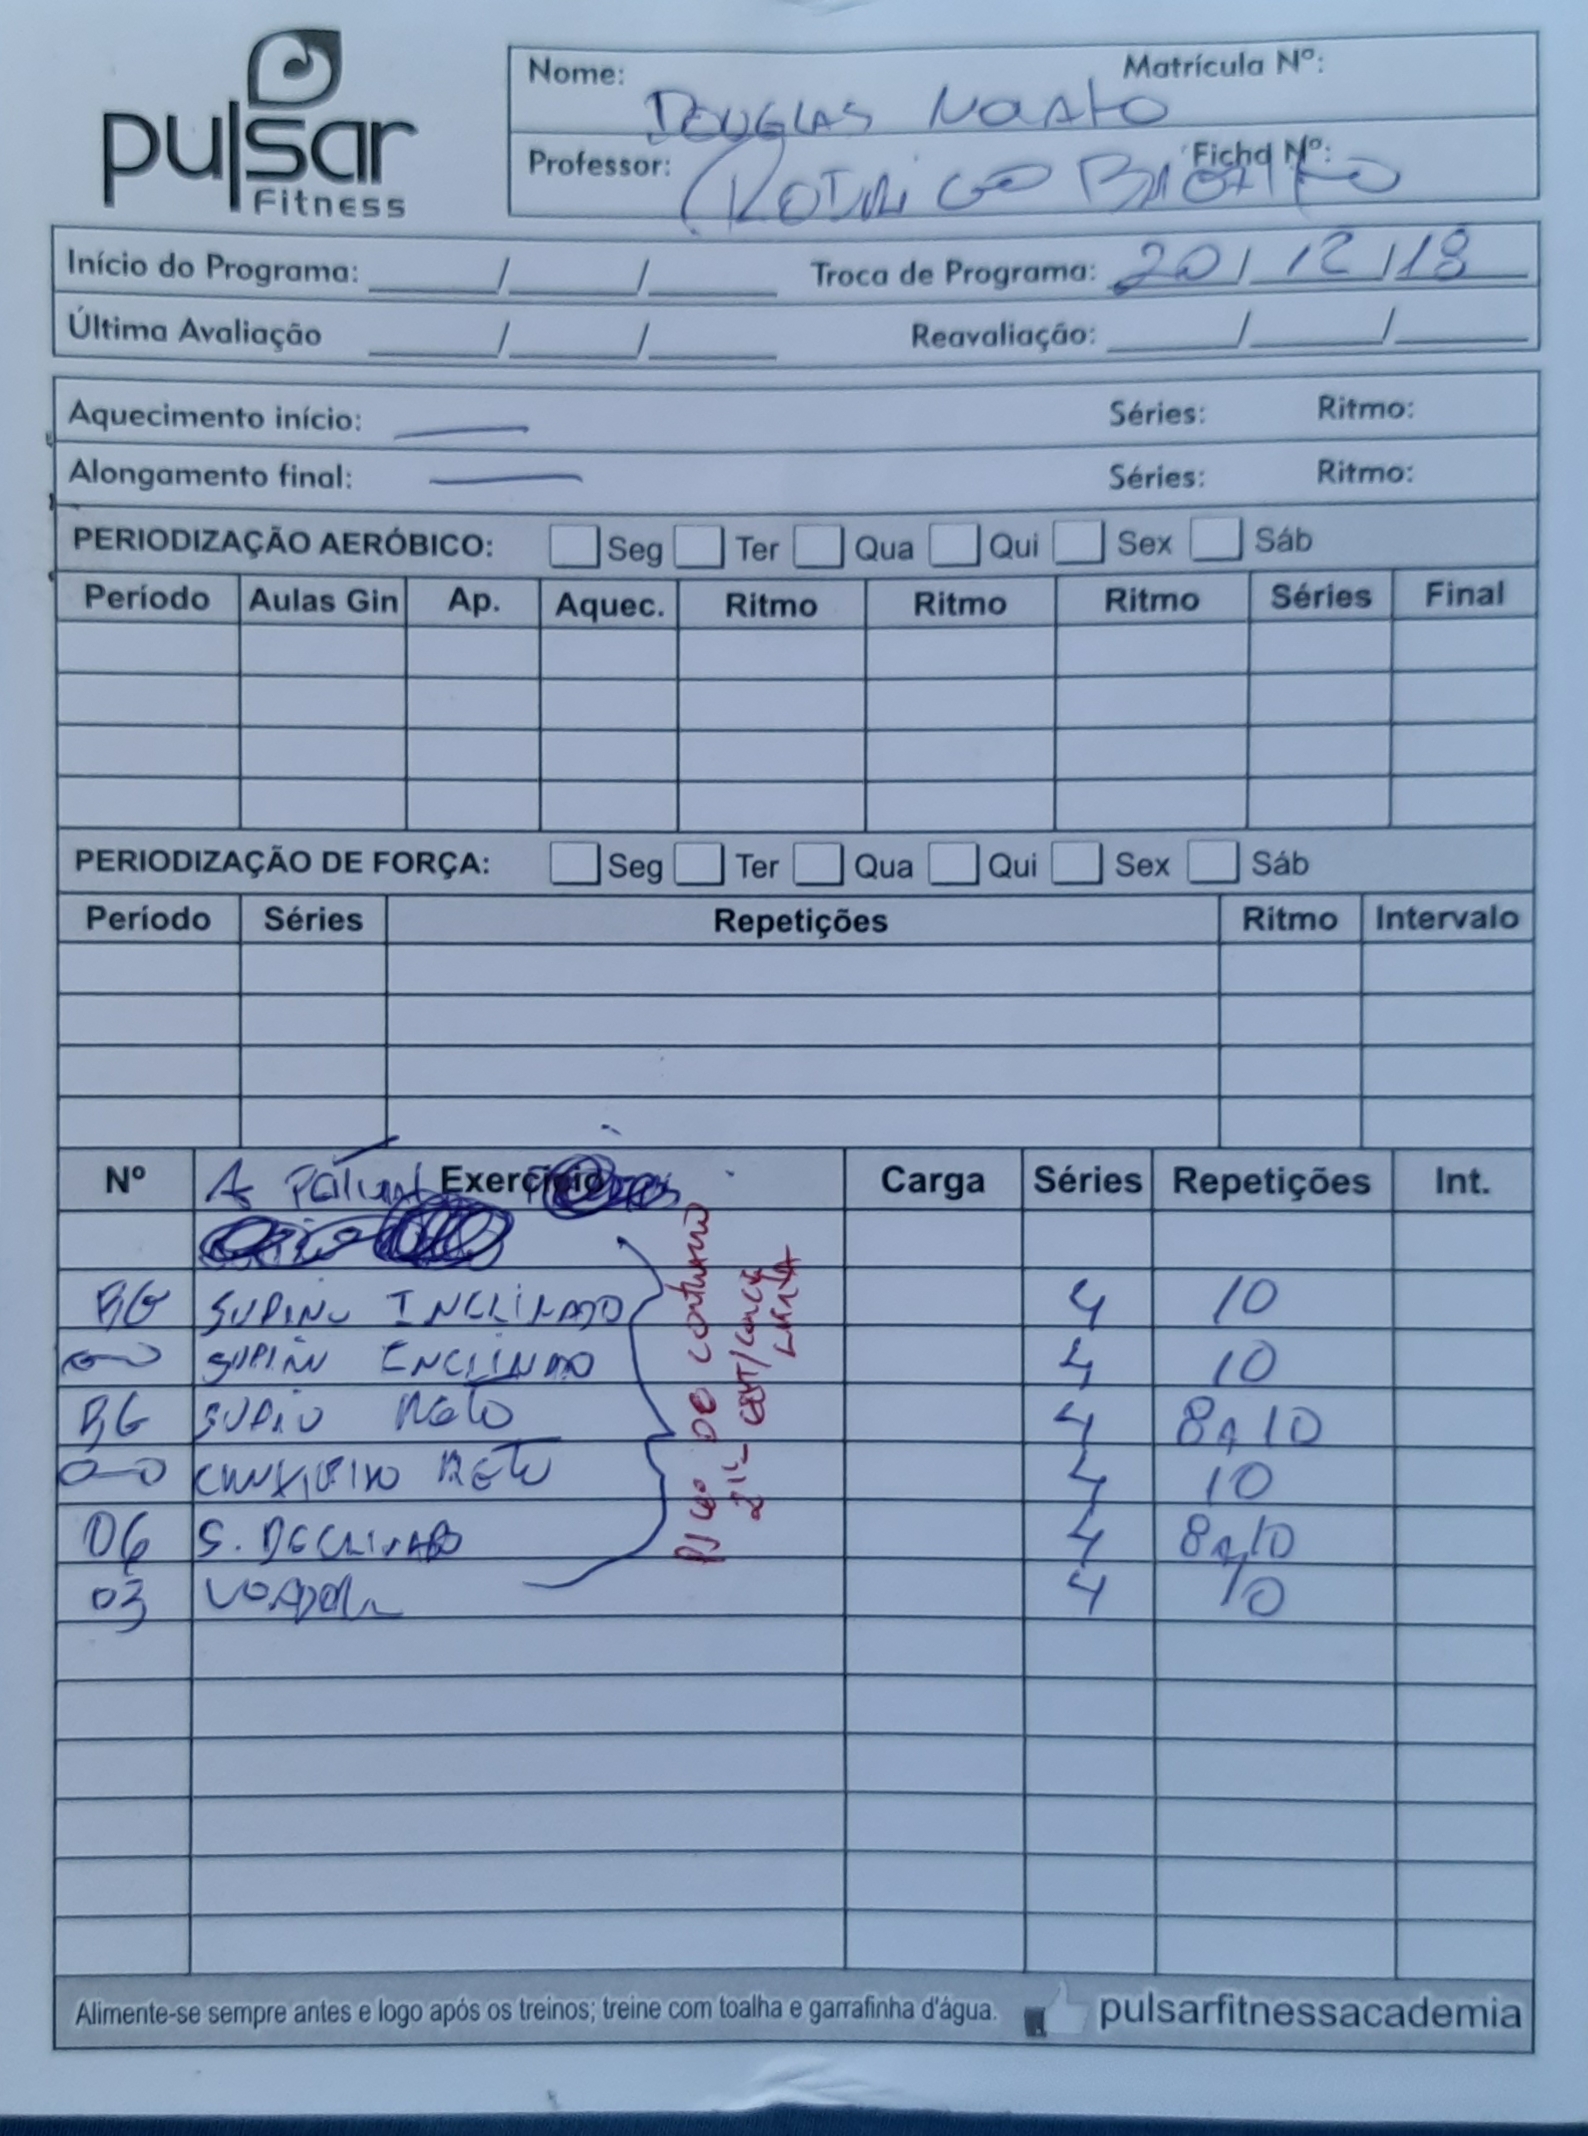 pulsar
Fitness
Nome: Matrícula Nº:
DOUGLAS
Professor: Ficha Nº:
RODRIGO
Início do Programa: / / Troca de Programa: 20/12/18
Última Avaliação / / Reavaliação: / /
Aquecimento início: — Séries: Ritmo:
Alongamento final: — Séries: Ritmo:
PERIODIZAÇÃO AERÓBICO: Seg Ter Qua Qui Sex Sáb
Período Aulas Gin Ap. Aquec. Ritmo Ritmo Ritmo Séries Final
PERIODIZAÇÃO DE FORÇA: Seg Ter Qua Qui Sex Sáb
Período Séries Repetições Ritmo Intervalo
Nº A Peitoral Exercício Carga Séries Repetições Int.
SUPINO INCLINADO 4 10
SUPINO INCLINADO 4 10
SUPINO RETO 4 8 A 10
CRUXIFIXO RETO 4 10
06 S. DECLINADO 4 8 A 10
03 VOADOR 4 10
PICO DE CONTRAÇÃO
LENTA
Alimente-se sempre antes e logo após os treinos; treine com toalha e garrafinha d'água. pulsarfitnessacademia